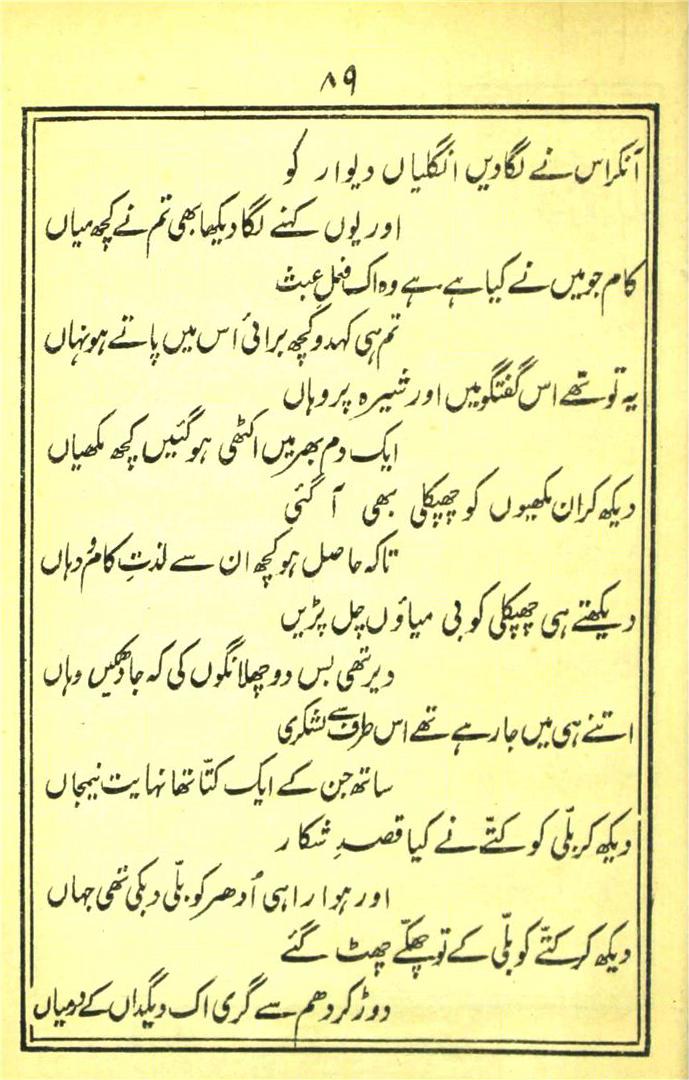 ۸۹
آنکر اس نے لگا دیں انگلیاں دیوار کو
اور یوں کہنے لگا دیکھا بھی تم نے کچھ میاں
کام جو میں نے کیا ہے ہے وہ اک فعلِ عبث
تم ہی کہدو کچھ برائی اس میں پاتے ہو نہاں
یہ تو تھے اس گفتگو میں اور شیرہ پر وہاں
ایک دم بھر میں اکٹھی ہو گئیں کچھ مکھیاں
دیکھ کر ان مکھیوں کو چھپکلی بھی آ گئی
تاکہ حاصل ہو کچھ ان سے لذتِ کام و دہاں
دیکھتے ہی چھپکلی کو بی میاؤں چل پڑیں
دیر تھی بس دو چھلانگوں کی کہ جا دھمکیں وہاں
اتنے ہی میں جا رہے تھے اس طرف سے لشکری
ساتھ جن کے ایک کتّا تھا نہایت نیمجاں
دیکھ کر بلّی کو کتّے نے کیا قصدِ شکار
اور ہوا راہی اُدھر کو بلّی دبکی تھی جہاں
دیکھ کر کتّے کو بلّی کے تو چھکّے چھٹ گئے
دوڑ کر دھم سے گری اک دیگداں کے درمیاں